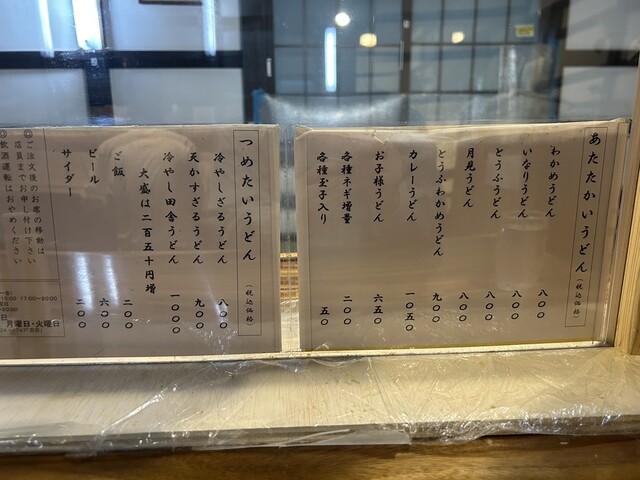 あたたかいうどん(税込価格)
わかめうどん 八〇〇
いなりうどん 八〇〇
とうふうどん 八〇〇
月見うどん 八〇〇
とうふわかめうどん 九〇〇
カレーうどん 一〇五〇
お子様うどん 六五〇
各種ネギ増量 二〇〇
各種玉子入り 五〇
つめたいうどん(税込価格)
冷やしざるうどん 八〇〇
天かすざるうどん 九〇〇
冷やし田舎うどん 一〇〇〇
大盛は二百五十円増
ご飯 二〇〇
ビール 六〇〇
サイダー 二〇〇
◎ご注文後のお席の移動は
店員までお申し付け下さい
◎飲酒運転はおやめください
15:00 17:00~20:00
月曜日・火曜日